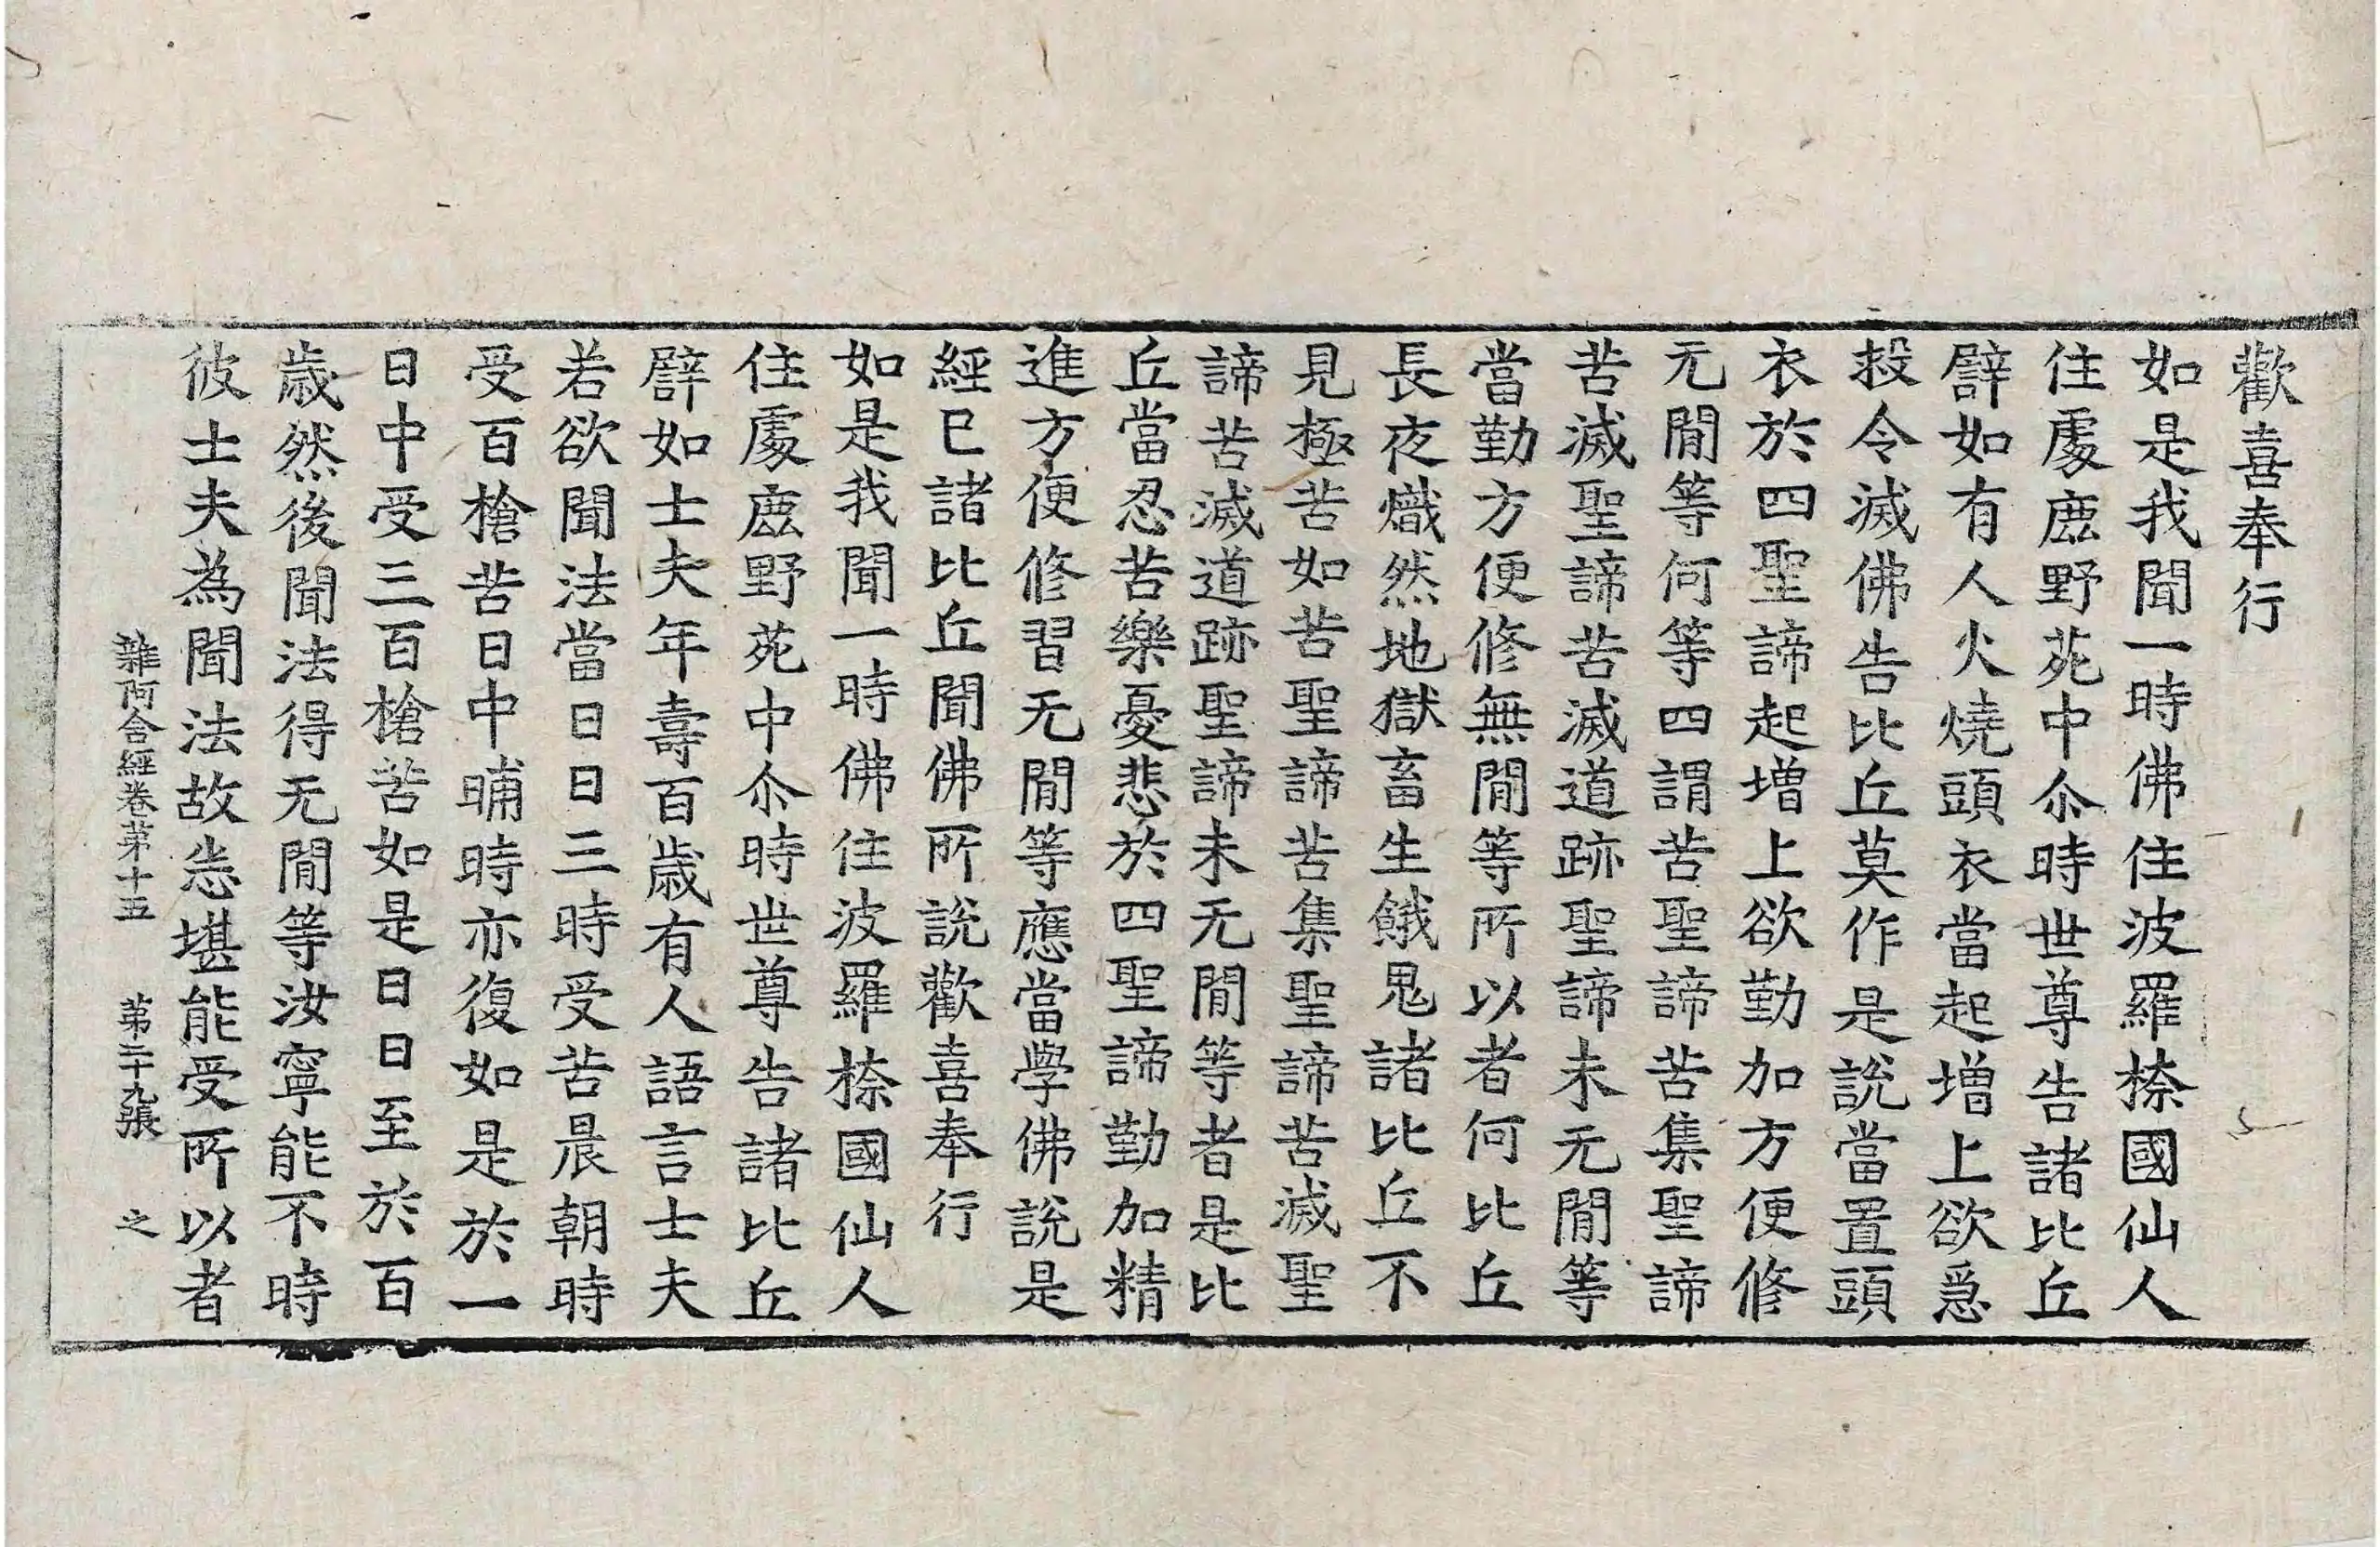 歡喜奉行
如是我聞一時佛住波羅㮈國仙人
住處鹿野苑中尒時世尊告諸比丘
譬如有人火燒頭衣當起增上欲急
投令滅佛告比丘莫作是說當置頭
衣於四聖諦起增上欲勤加方便修
无閒等何等四謂苦聖諦苦集聖諦
苦滅聖諦苦滅道跡聖諦未无閒等
當勤方便修無閒等所以者何比丘
長夜熾然地獄畜生餓鬼諸比丘不
見極苦如苦聖諦苦集聖諦苦滅聖
諦苦滅道跡聖諦未无閒等者是比
丘當忍苦樂憂悲於四聖諦勤加精
進方便修習无閒等應當學佛說是
經已諸比丘聞佛所說歡喜奉行
如是我聞一時佛住波羅㮈國仙人
住處鹿野苑中尒時世尊告諸比丘
譬如士夫年壽百歲有人語言士夫
若欲聞法當日日三時受苦晨朝時
受百槍苦日中晡時亦復如是於一
日中受三百槍苦如是日日至於百
歲然後聞法得无閒等汝寧能不時
彼士夫為聞法故悉堪能受所以者
雜阿含經卷第十五 第二十九張 之